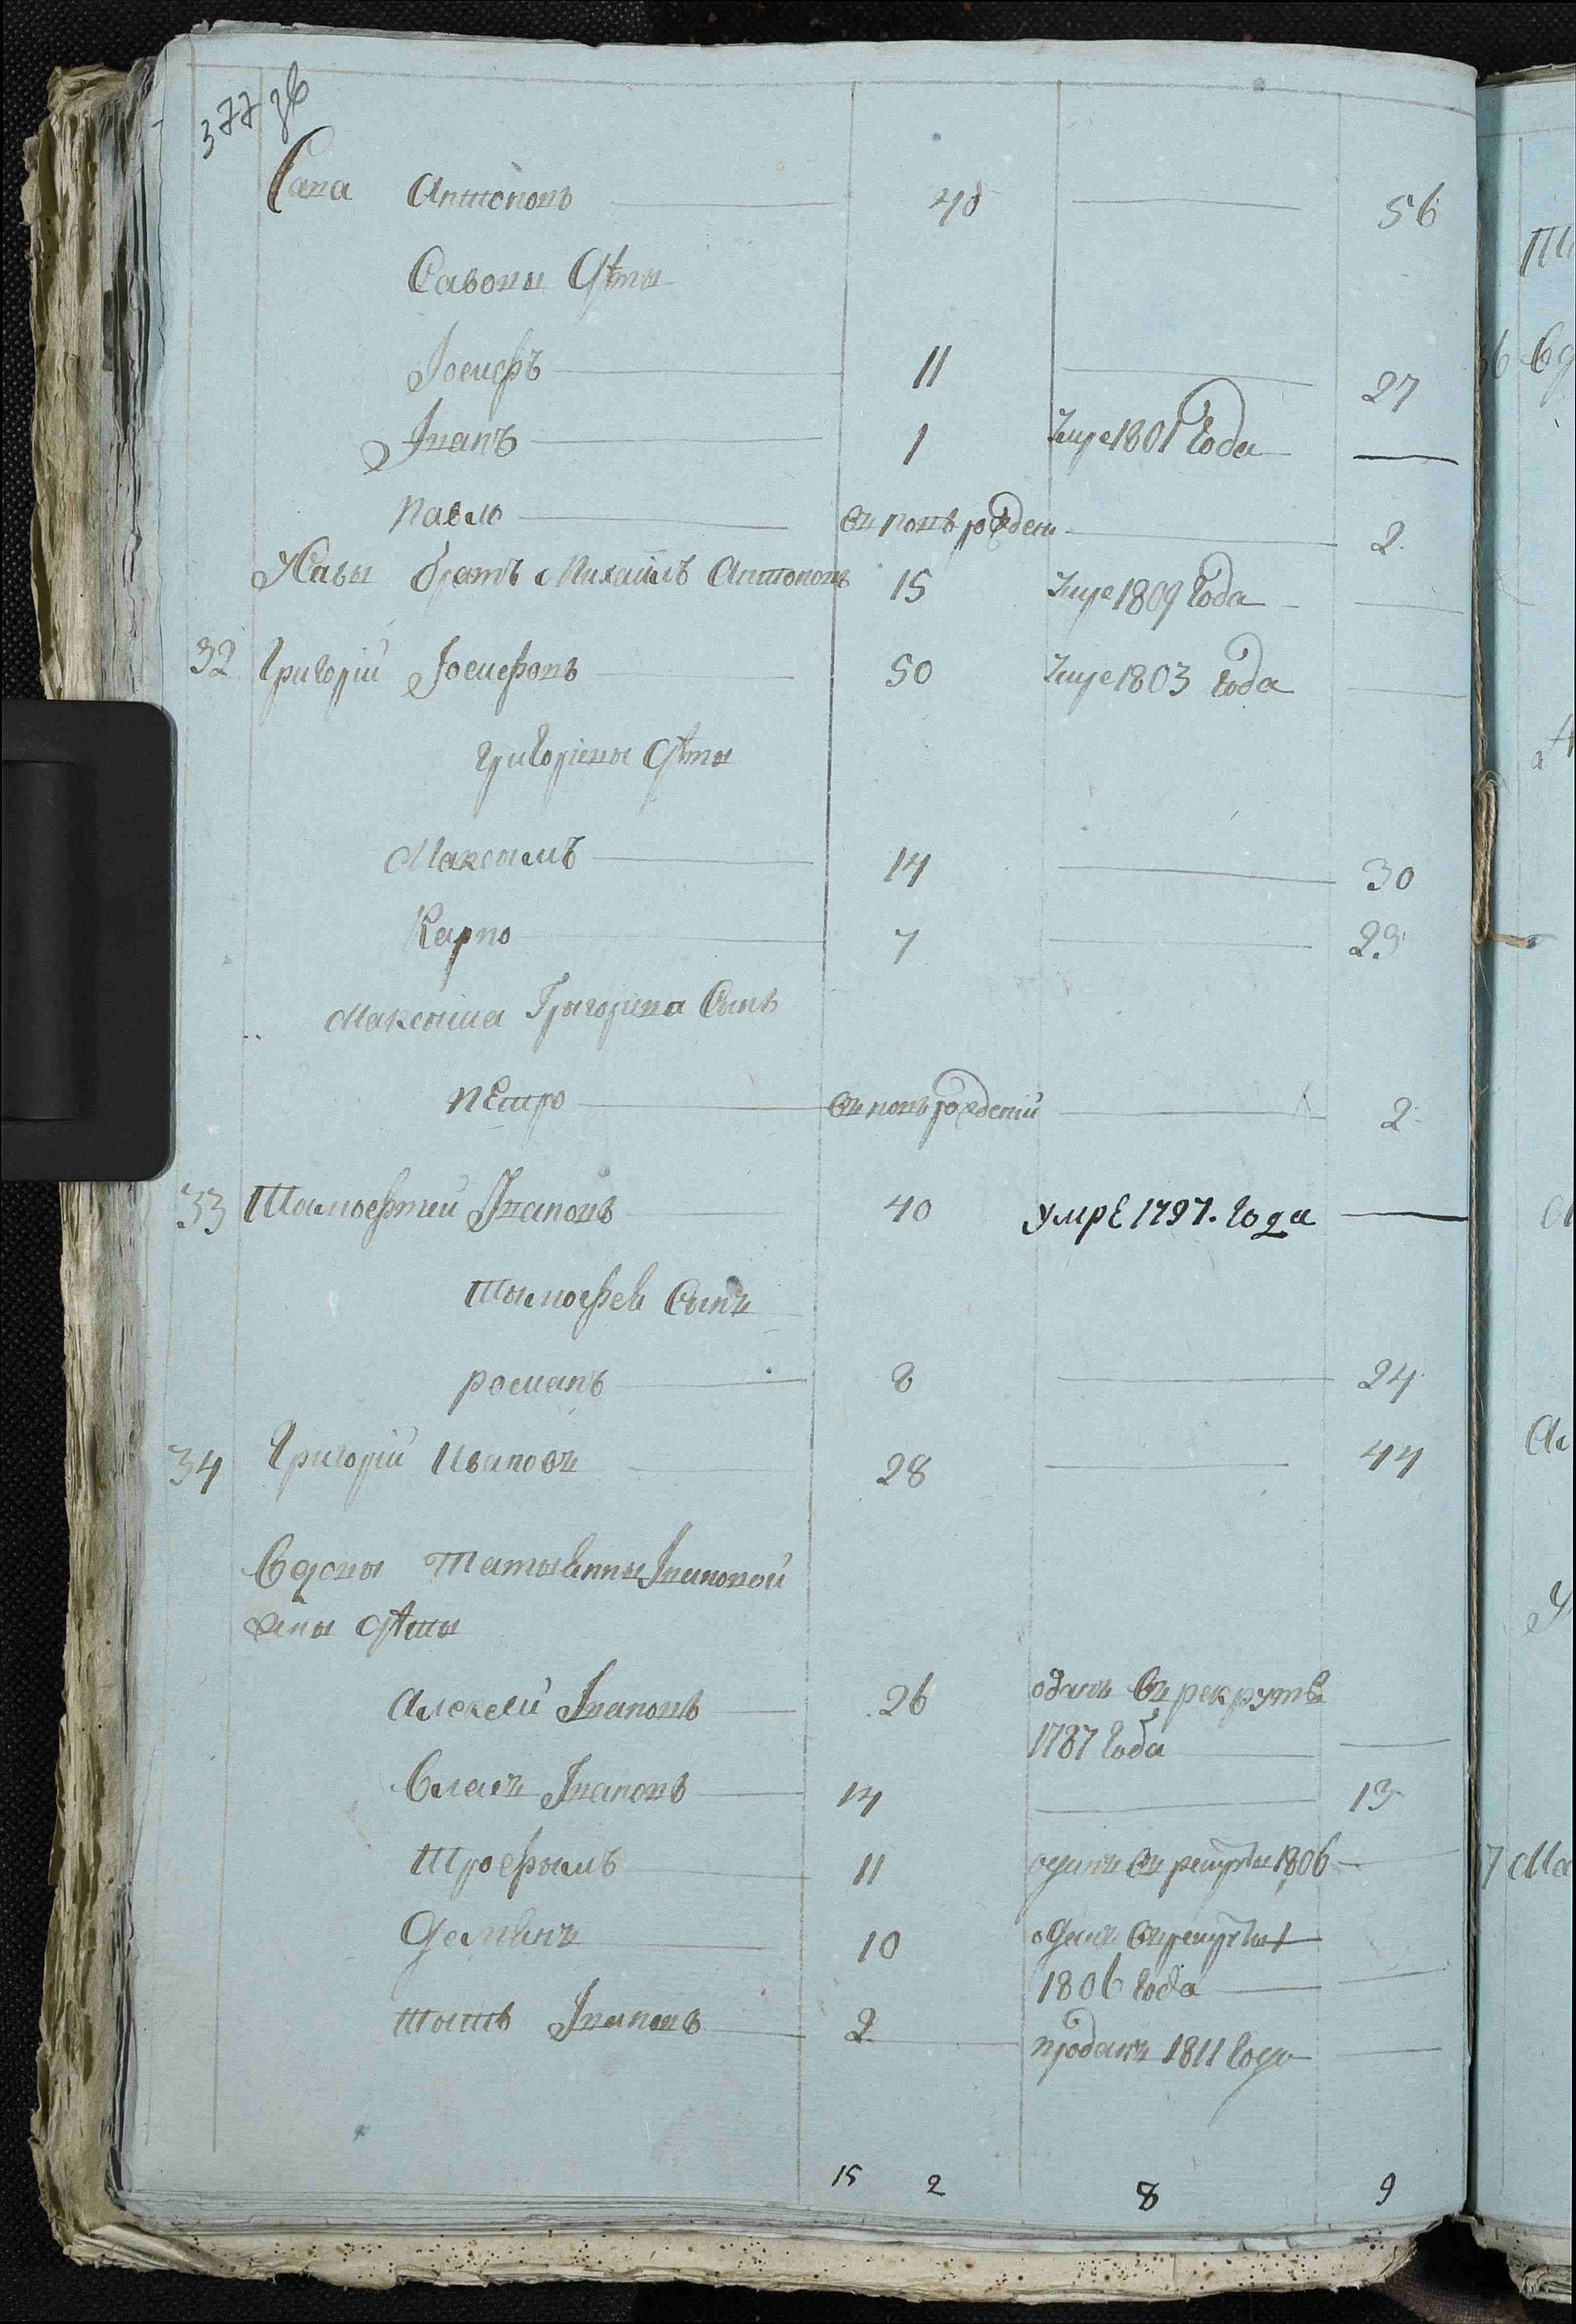 377 зв
Сава Антоновъ 40 56
Савовы Дѣти
Іосифъ 11 27
Іванъ 1 Умре 1801 Года
Павло вновъ рожденъ 2
Савы братъ Михайлъ Антоновъ 15 Умре 1809 Года
32 Григорій Іосифовъ 50 Умре 1803 Года
Григоріевы Дѣти
Максимъ 14 30
Карпо 7 23
Максима Григорієва Сынъ
Петро вновъ рожденій 2
33 Тимофтей Івановъ 40 умре 1797. года
Тимофея Сынъ
романъ 8 24
34 Григорій Ивановъ 28 44
Вдовы Івановой
жены Дѣти
Алексей Івановъ 26 оданъ въ рекруты
1787 года
Власъ Івановъ 14 13
Трофимъ 11 отданъ въ рекруты 1806
Демянъ 10 отданъ въ рекруты
1806 года
Титъ Івановъ 2 проданъ 1811 Года
15 2 8 9